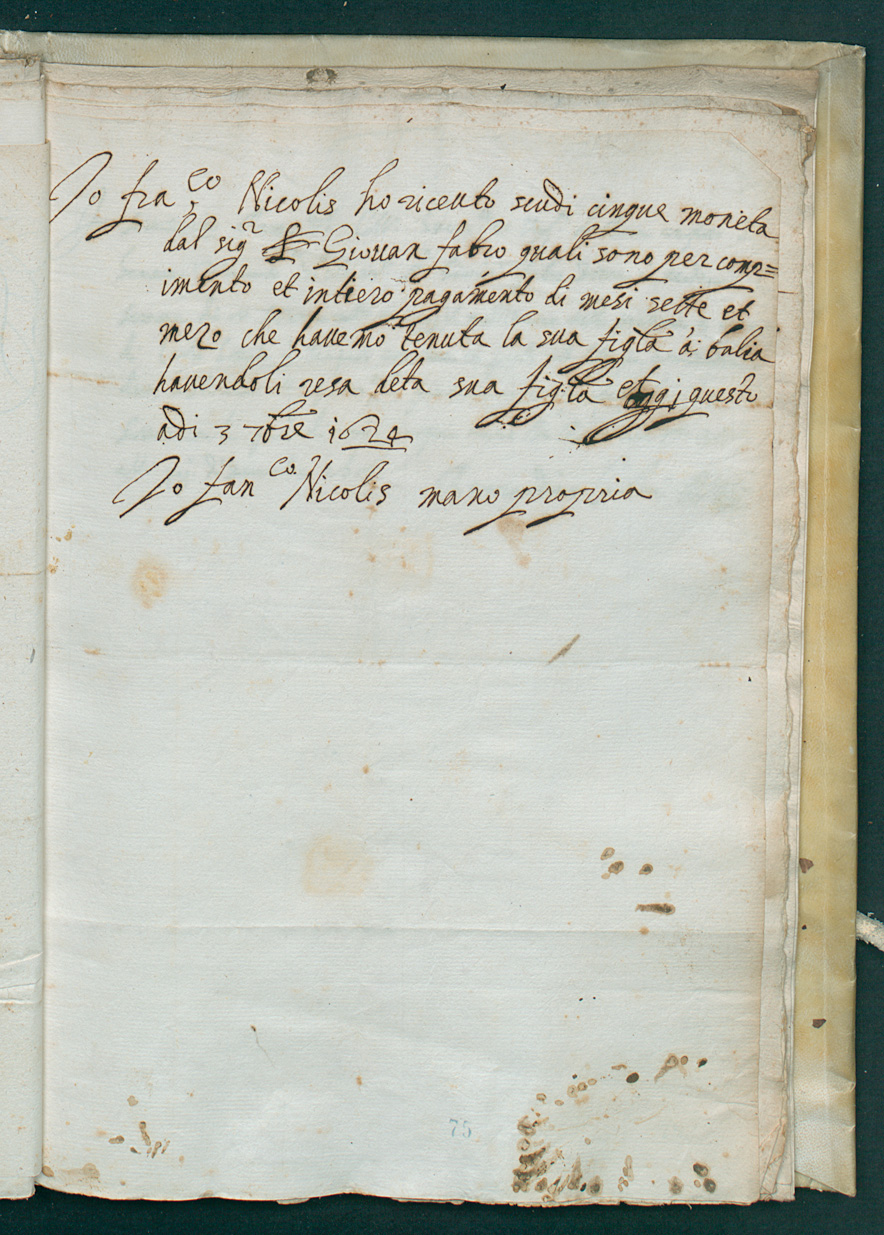 Io fra^co Nicolis ho riceuto scudi cinque moneta
dal sig^r Giouan fabro quali sono per comp=
imento et intiero pagamento di mesi sette et
mezo che hauemo tenuta la sua figlia à balia
hauendoli resa deta sua figlia et oggi questo
adi 3 7bre 1624
Io fan^co Nicolis mano propria
75